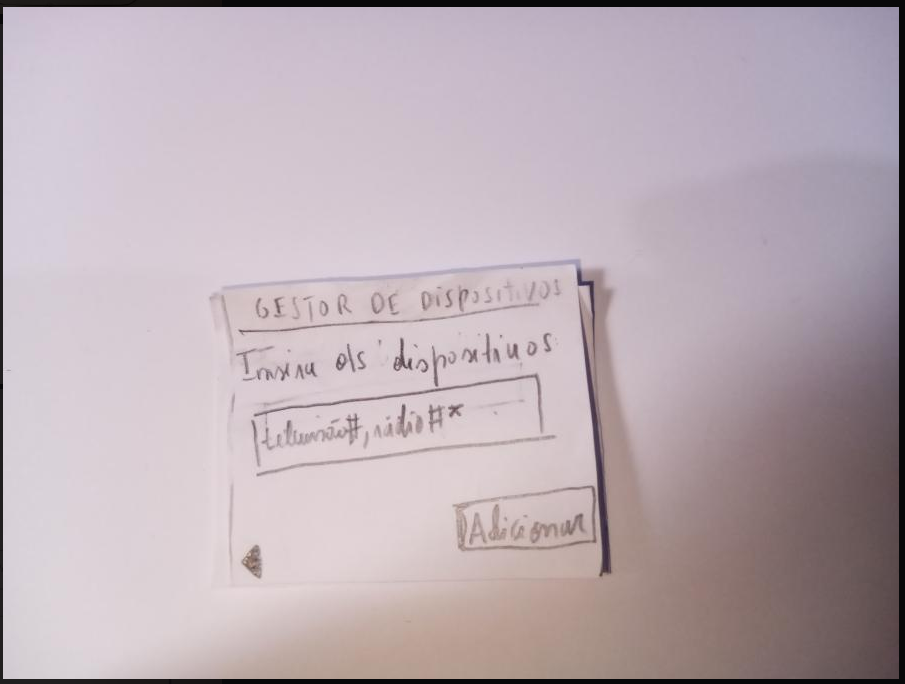 GESTOR DE DISPOSITIVOS
Insira os dispositivos
televisão#, rádio#*
Adicionar